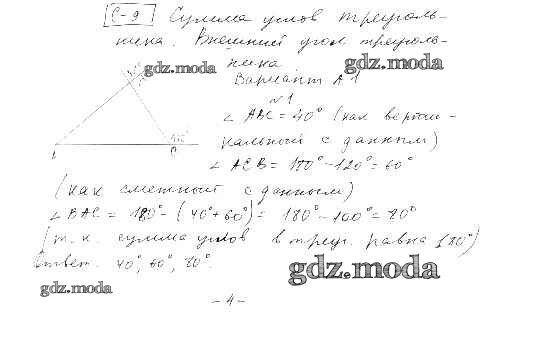 С-9 Сумма углов треуголь-
ника. Внешний угол треуголь-
ника
gdz.moda
gdz.moda
Вариант А1
№1
∠ ABC = 40° (как верти-
кальный с данным)
∠ ACB = 180° - 120° = 60°
(как смежный с данным)
∠ BAC = 180° - (40° + 60°) = 180° - 100° = 80°
(т.к. сумма углов в треуг. равна 180°)
Ответ. 40°, 60°, 80°.
gdz.moda
gdz.moda
- 4 -